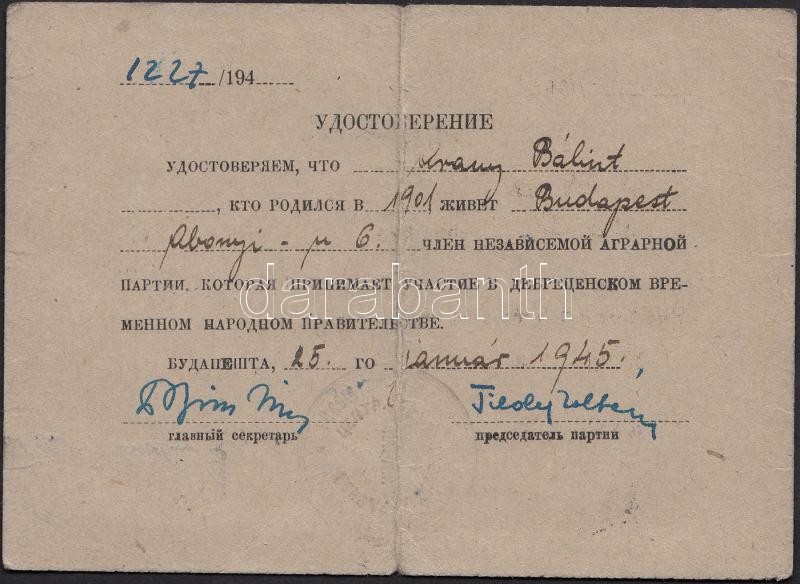 1227/194
УДОСТОВЕРЕНИЕ
УДОСТОВЕРЯЕМ, ЧТО Arany Bálint
, КТО РОДИЛСЯ В 1901 ЖИВЕТ Budapest
Abonyi-u 6. ЧЛЕН НЕЗАВИСЕМОЙ АГРАРНОЙ
ПАРТИИ, КОТОРАЯ ПРИНИМАЕТ УЧАСТИЕ В ДЕБРЕЦЕНСКОМ ВРЕ-
darabanth
МЕННОМ НАРОДНОМ ПРАВИТЕЛЬСТВЕ.
БУДАПЕШТА, 25. ГО január 1945.
Tildy Zoltán
главный секретарь председатель партии